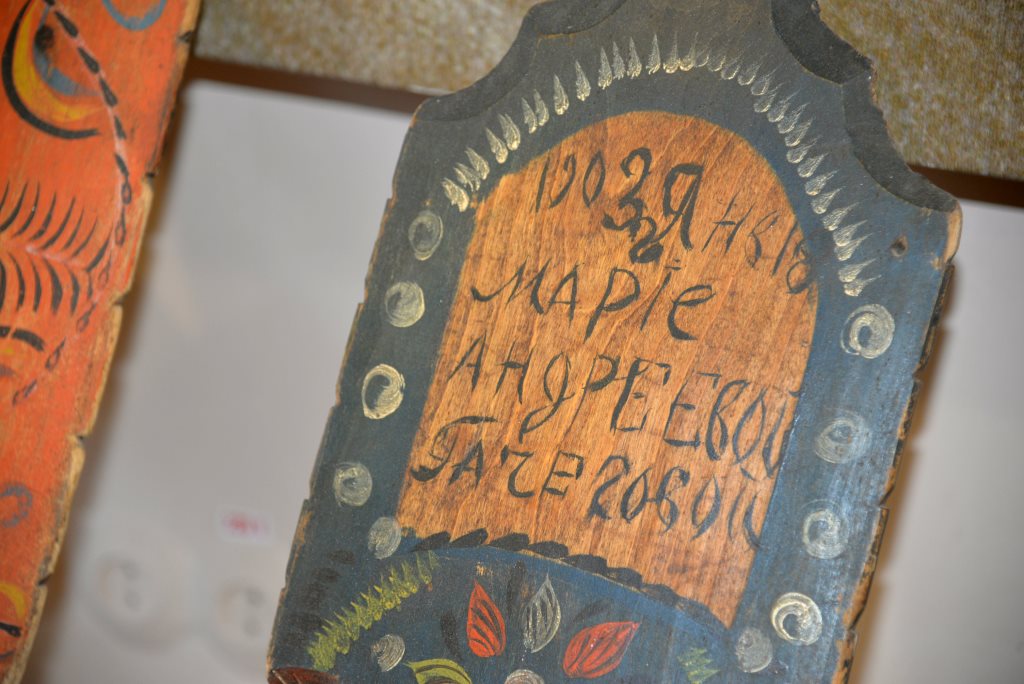 1903 Я НВ 18
МАРІе
АНДРЕЕВОЙ
ГАЧЕГОВОЙ